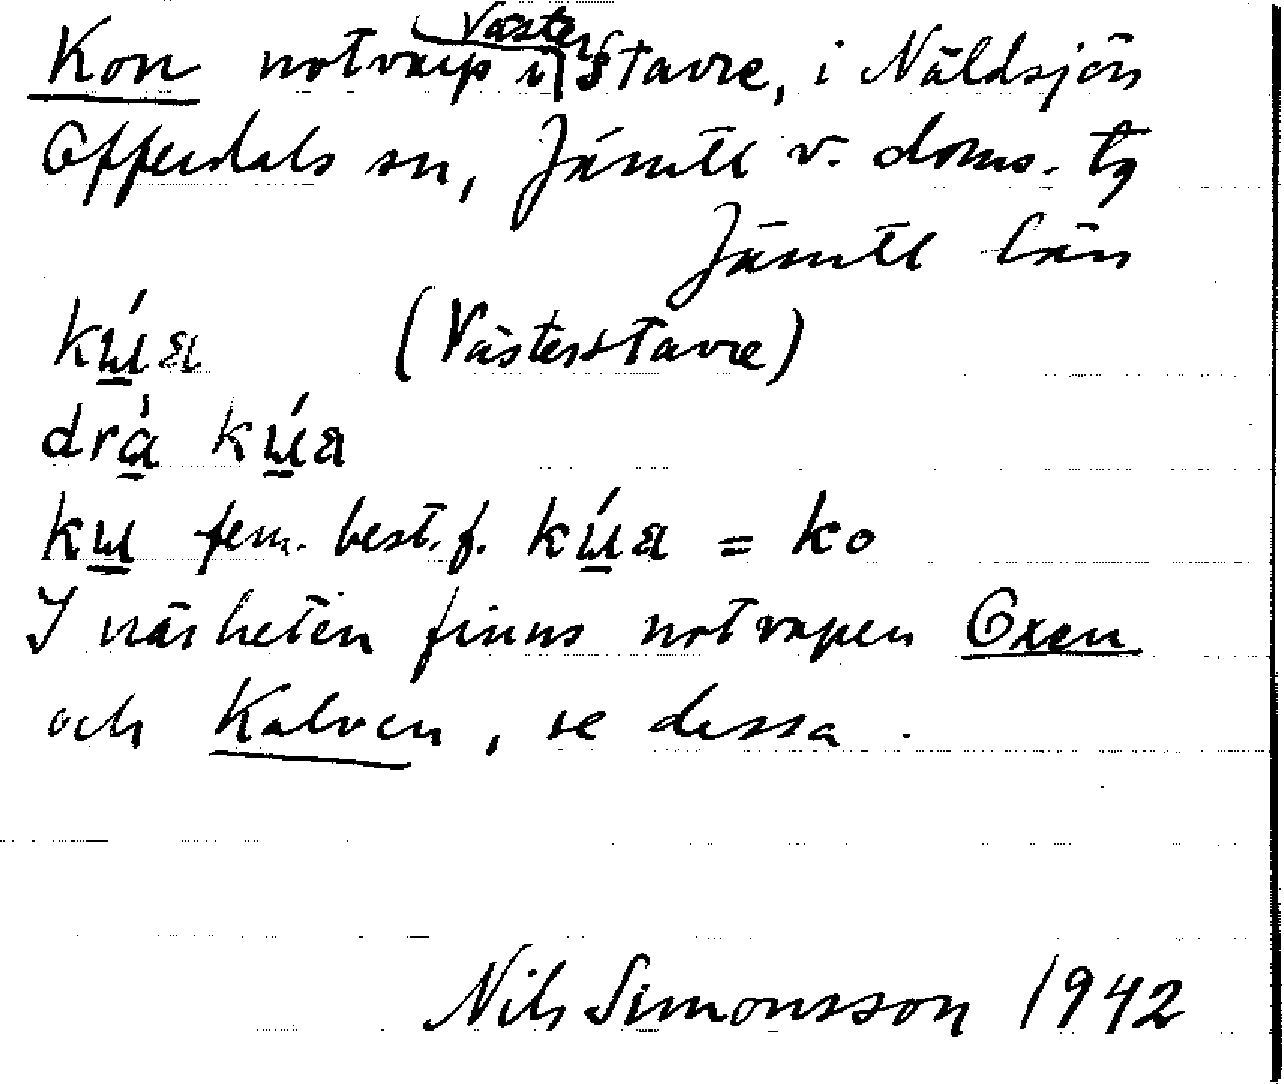 Kon notvarp i Västerstavre, i Näldsjön
Offerdals sn, Jämtl v. doms. tg
Jämtl län
kɯ́a (Västerstavre)
drà kɯ́a
kɯ fem. best. f. kɯ́a = ko
I närheten finns notvapen Oxen
och Kalven, se dessa.
Nils Simonsson 1942